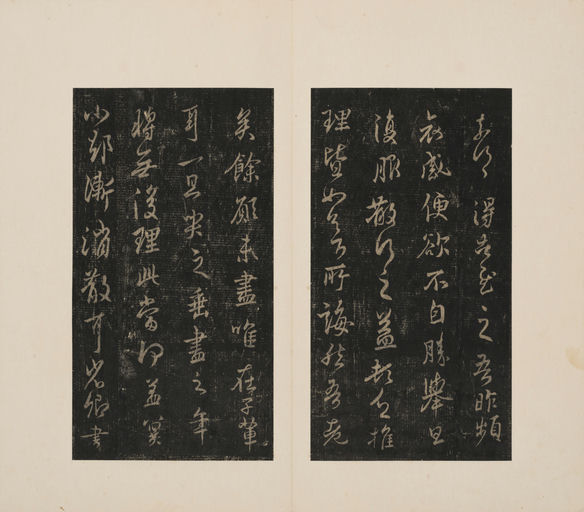 得之吾昨頻
哀感便欲不自勝舉旦
復服散行之益頓乏推
理皆如足下所誨然吾老
矣餘願未盡唯在子輩
耳一旦哭之垂盡之年
將無復理此當何益冥
小卻漸消散耳省卿書